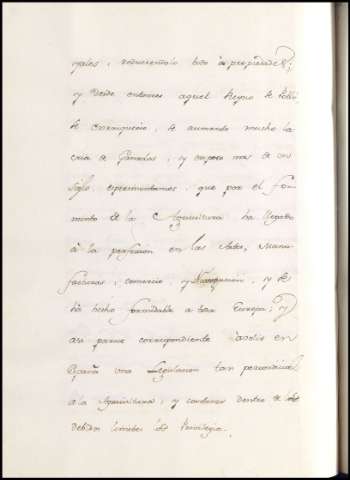 yales, reduciendolo todo à propiedades;
y desde entonces aquel Reyno se
de enrriquecio, se aumento mucho la
cria de Ganados, y en poco mas de un
siglo experimentamos, que por el fo-
mento de la Agricultura ha llegado
à la perfeccion en las Artes, Manu-
facturas, comercio, y Navegacion, y se
ha hecho formidable a toda Europa; y
asi parece correspondiente en
España una Legislacion tan perjudicial
a la Agricultura, y contener dentro de los
debidos limites los Privilegios.